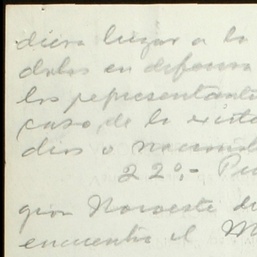 diera lugar a la
dades en defensa
los representant
caso, de la exist
dios o nacional
22º,- Pe
gion Noroeste de
encuentra el M